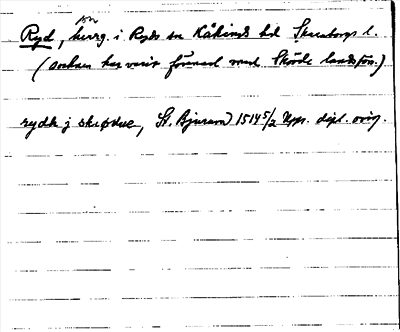 fn
Ryd, herrg. i Ryds sn Kåkinds hd Skaraborgs l.
(socknen har varit förenad med Skövde landsförs.)
rydh j skødue, St. Bjurum 1514 5/2 Upps. dipl. orig.